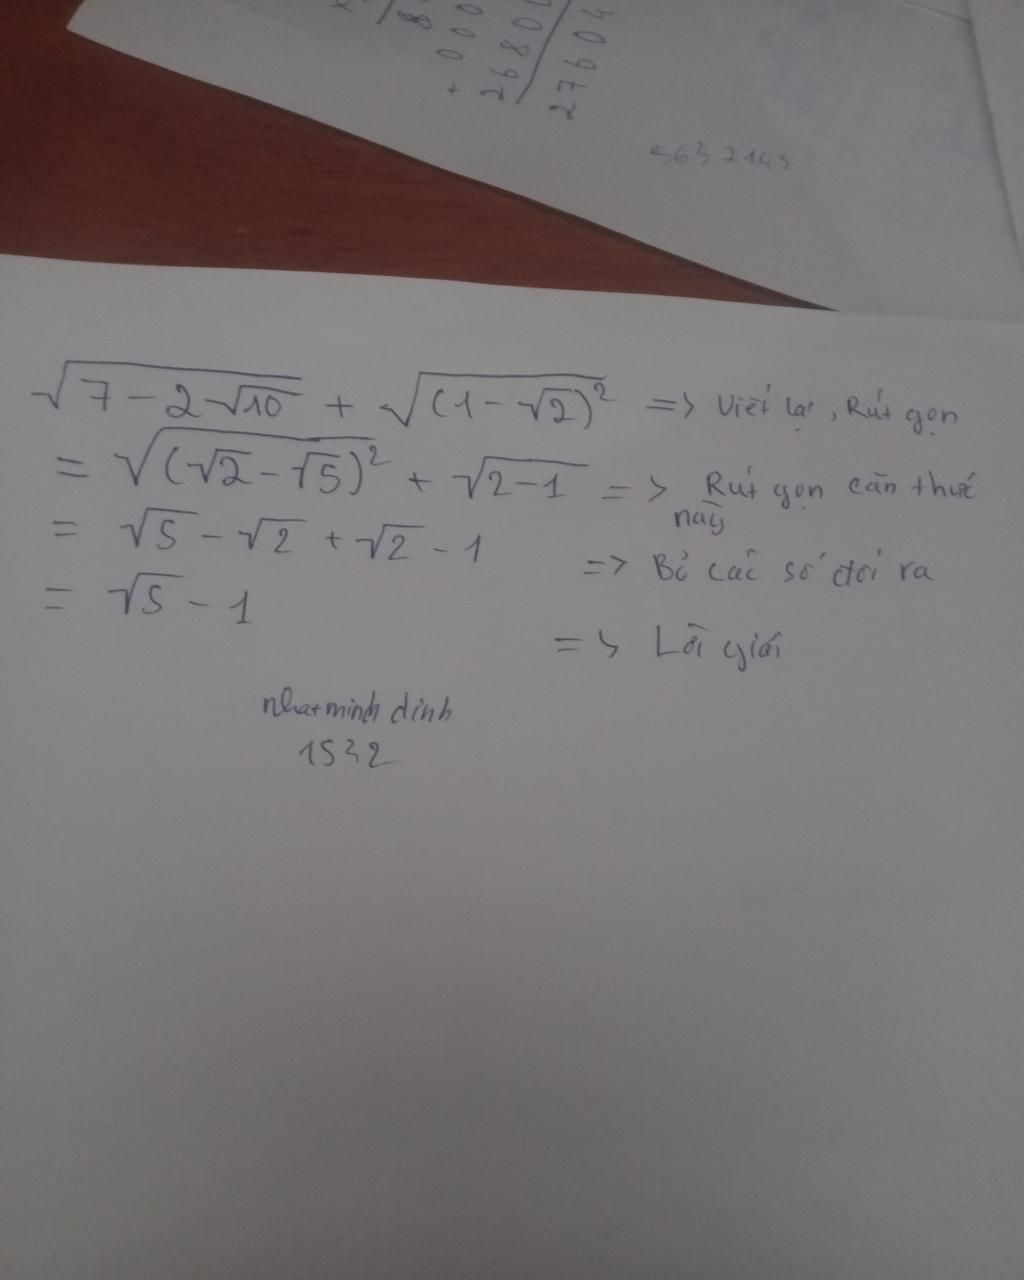 + 000
26800
27604
5632145
√7-2√10 + √(1-√2)² => Viết lại, Rút gọn
= √(√2-√5)² + √2-1 => Rút gọn căn thức
này
= √5 - √2 + √2 - 1 => Bỏ các số đối ra
= √5 - 1 => Lời giải
nhatminh dinh
1532